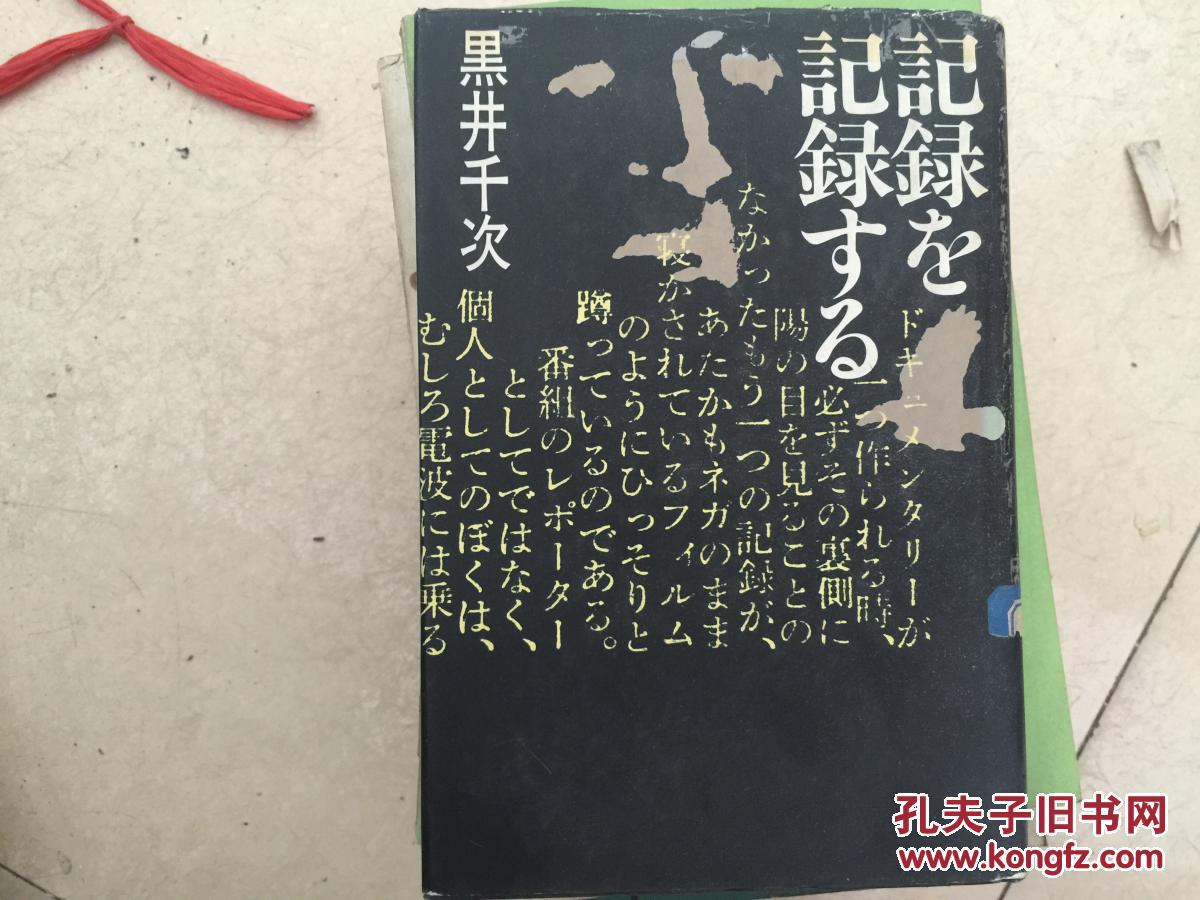 記録を
記録する
ドキュメンタリーが
一つ作られる時、
必ずその裏側に
陽の目を見ることの
なかったもう一つの記録が、
あたかもネガのまま
寝かされているフィルム
のようにひっそりと
蹲っているのである。
番組のレポーター
としてではなく、
個人としてのぼくは、
むしろ電波には乗る
黒井千次
孔夫子旧书网
www.kongfz.com